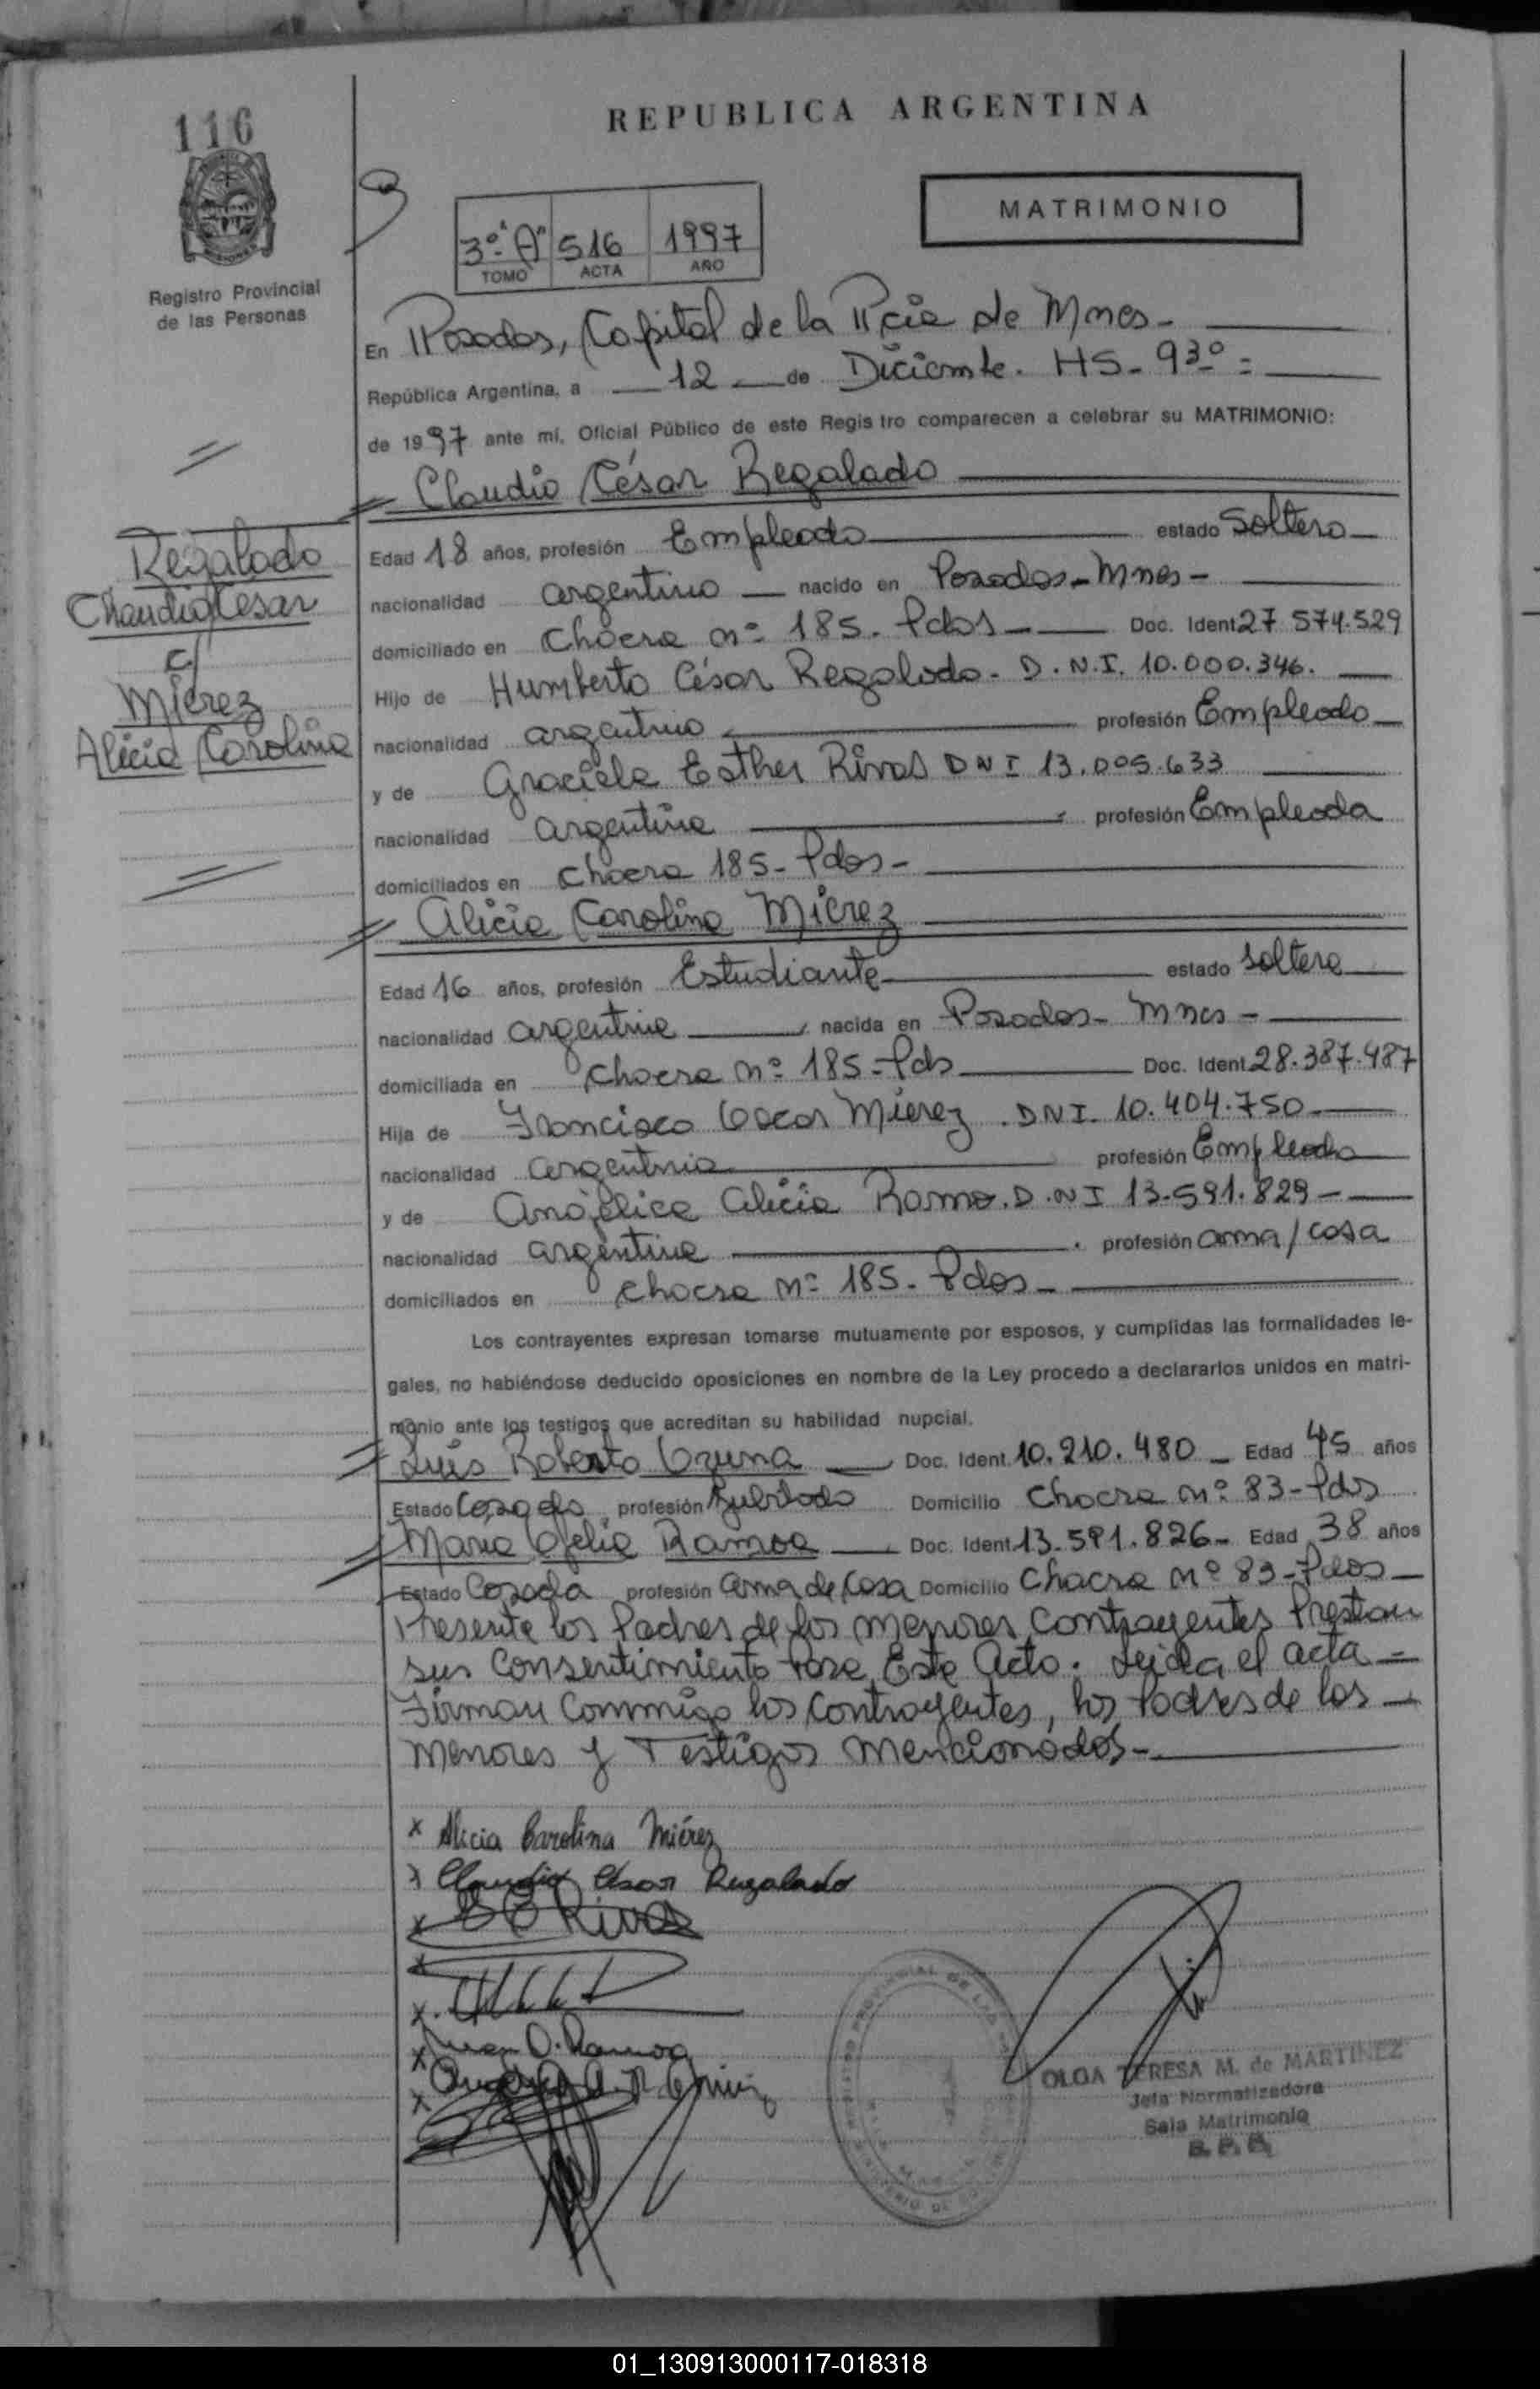 116
REPUBLICA ARGENTINA
MATRIMONIO
3º "A" 516 1997
TOMO ACTA AÑO
Registro Provincial
de las Personas
En Posadas, Capital de la Pcia de Mnes-
República Argentina, a 12 de Diciembre. HS- 9 30 =
de 1997 ante mí, Oficial Público de este Registro comparecen a celebrar su MATRIMONIO:
Claudio César Regalado
Edad 18 años, profesión Empleado estado Soltero
nacionalidad argentino nacido en Posadas-Mnes-
domiciliado en Chacra nº 185. Pdas Doc. Ident 27 574.529
Hijo de Humberto César Regalado. D.N.I. 10.000.346.
nacionalidad argentino profesión Empleado
y de Graciela Esther Rivas DNI 13.005.633
nacionalidad argentina profesión Empleada
domiciliados en Chacra 185- Pdas-
Regalado
Claudio César
c/
Mierez
Alicia Carolina
Alicia Carolina Mierez
Edad 16 años, profesión Estudiante estado soltera
nacionalidad argentina nacida en Posadas- Mnes-
domiciliada en Chacra nº 185-Pds Doc. Ident 28.387.487
Hija de Francisco Oscar Mierez. DNI. 10.404.750
nacionalidad argentina profesión Empleado
y de Angélica Alicia Ramoa. D.NI 13.591.829-
nacionalidad argentina profesión ama/casa
domiciliados en Chacra nº 185. Pdas-
Los contrayentes expresan tomarse mutuamente por esposos, y cumplidas las formalidades le-
gales, no habiéndose deducido oposiciones en nombre de la Ley procedo a declararlos unidos en matri-
monio ante los testigos que acreditan su habilidad nupcial.
Luis Roberto Ozuna Doc. Ident 10.210.480 Edad 45 años
Estado Casado profesión Jubilado Domicilio Chacra nº 83-Pds
María Ofelia Ramoa Doc. Ident 13.591.826- Edad 38 años
Estado Casada profesión ama de casa Domicilio Chacra nº 83-Pdas
Presente los Padres de los menores contrayentes Prestan
sus consentimiento Para Este Acto. Leida el acta =
Firman Conmigo los Contrayentes, los Padres de los
Menores y Testigos mencionados-
x Alicia Carolina Miérez
x Claudio César Regalado
x G E Rivas
x
x
x Ramoa
x
OLGA TERESA M. de MARTINEZ
Jefa Normatizadora
Sala Matrimonio
R. P. P.
01_130913000117-018318